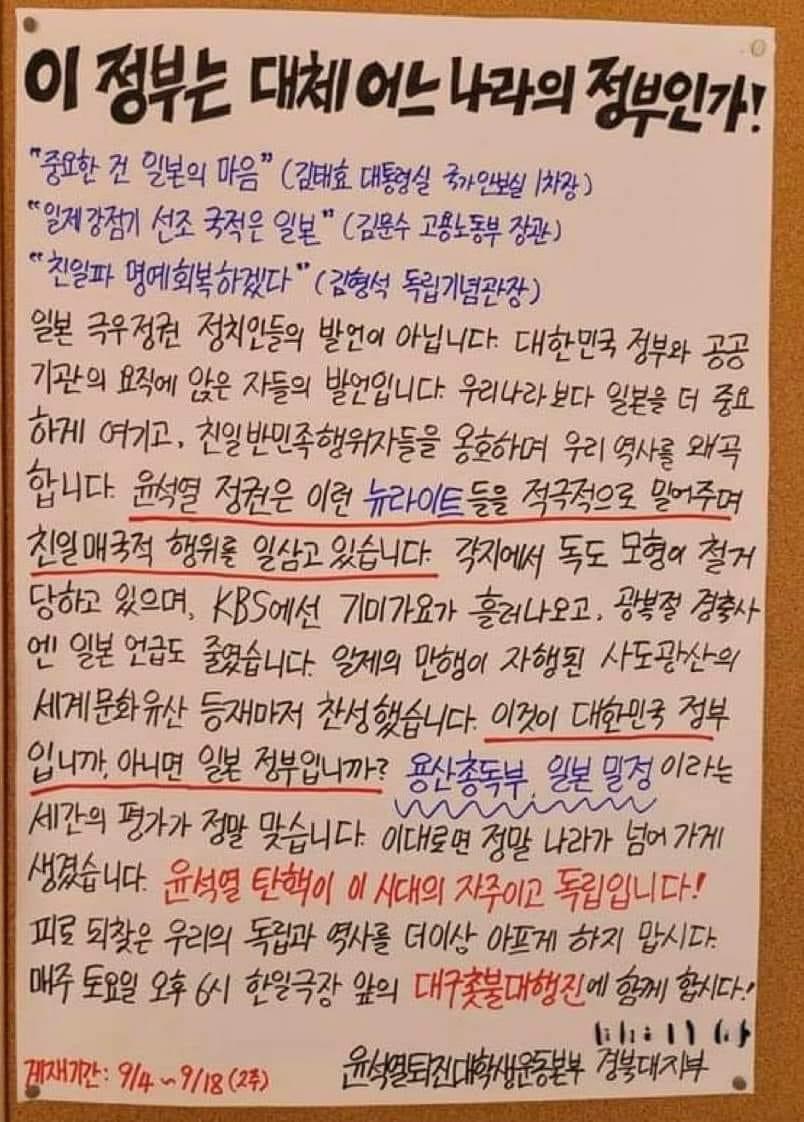 이 정부는 대체 어느 나라의 정부인가!
"중요한 건 일본의 마음" (김태효 대통령실 국가안보실 1차장)
"일제강점기 선조 국적은 일본" (김문수 고용노동부 장관)
"친일파 명예회복하겠다" (김형석 독립기념관장)
일본 극우정권 정치인들의 발언이 아닙니다. 대한민국 정부와 공공
기관의 요직에 앉은 자들의 발언입니다. 우리나라보다 일본을 더 중요
하게 여기고, 친일반민족행위자들을 옹호하며 우리 역사를 왜곡
합니다. 윤석열 정권은 이런 뉴라이트들을 적극적으로 밀어주며
친일매국적 행위를 일삼고 있습니다. 각지에서 독도 모형이 철거
당하고 있으며, KBS에선 기미가요가 흘러나오고, 광복절 경축사
엔 일본 언급도 줄였습니다. 일제의 만행이 자행된 사도광산의
세계문화유산 등재마저 찬성했습니다. 이것이 대한민국 정부
입니까, 아니면 일본 정부입니까? 용산총독부, 일본 밀정이라는
세간의 평가가 정말 맞습니다. 이대로면 정말 나라가 넘어가게
생겼습니다. 윤석열 탄핵이 이 시대의 자주이고 독립입니다!
피로 되찾은 우리의 독립과 역사를 더이상 아프게 하지 맙시다.
매주 토요일 오후 6시 한일극장 앞의 대구촛불대행진에 함께 합시다!
게재기간: 9/4 ~ 9/18 (2주) 윤석열퇴진대학생운동본부 경북대지부